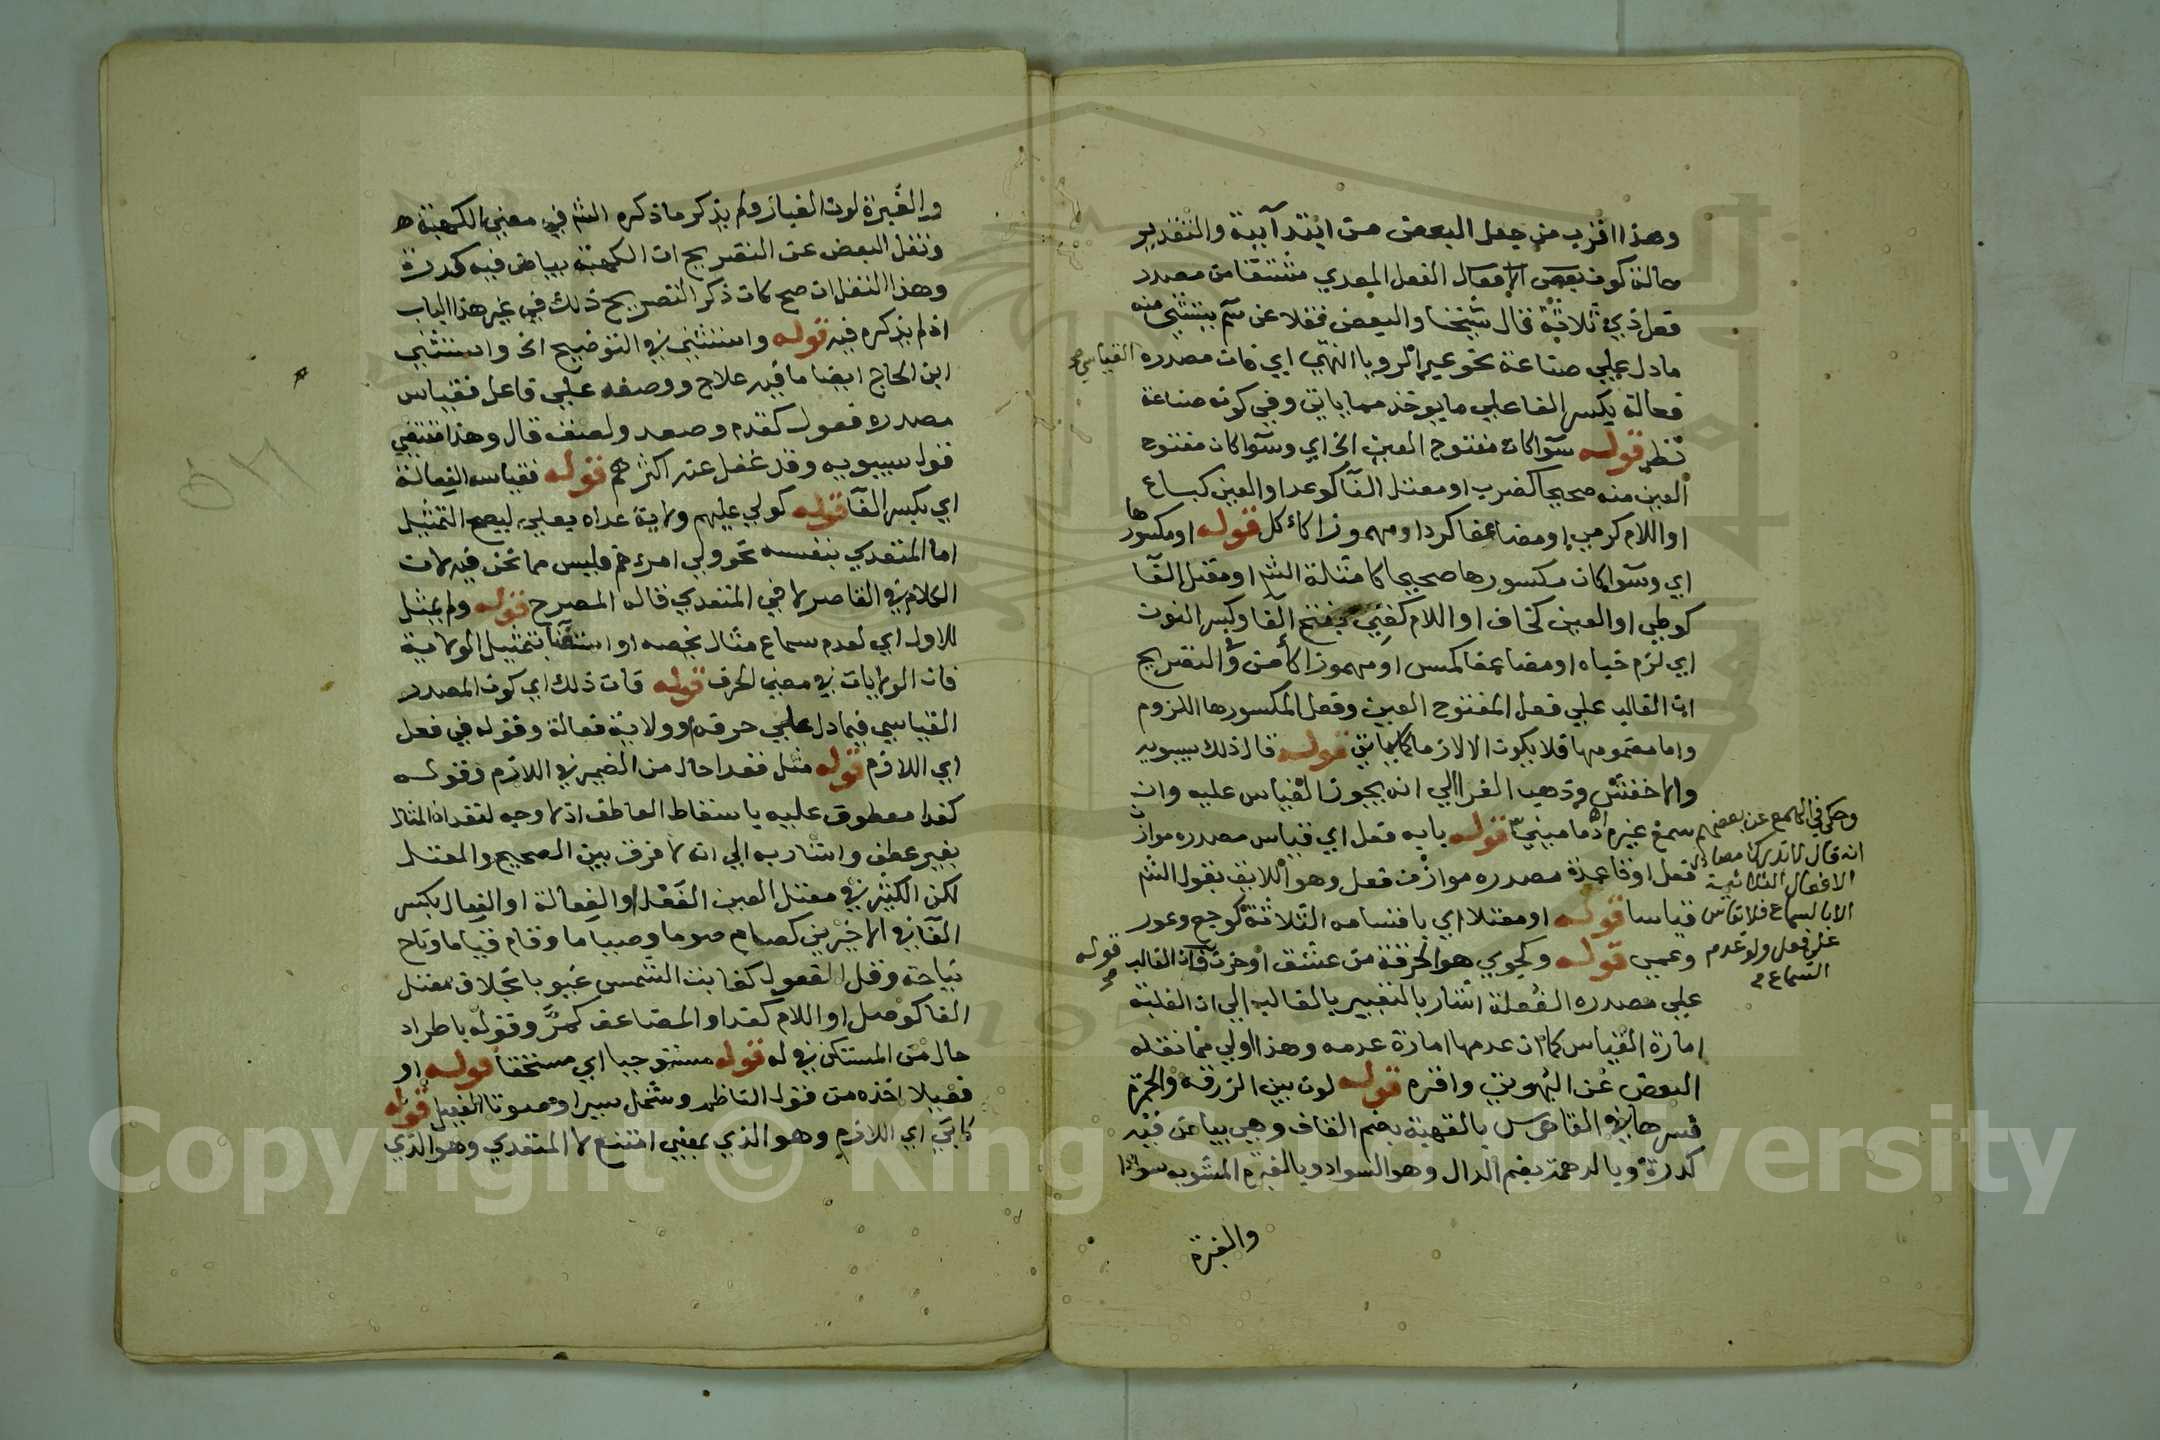 وهذا اقرب من جعل البعض من ابتدآيية والتقدير
حالة كون بعض الافعال الفعل المعدي مشتقا من مصدر
فعل ذي ثلاثة قال شيخنا والبعض فنقلا عن سم يستثني منه
مادل علي صناعة نحو عبر الرويا انتهي اي فان مصدره القياسي صح
فعالة بكسر الفا علي ما يوخذ مما ياتي وفي كونه صناعة
نظر قوله سوآ كان مفتوح العين الخ اي وسوآ كان مفتوح
العين منه صحيحا كضرب او معتل الفآ كوعد او العين كباع
او اللام كرمي او مضاعفا كرد او مهموزا كاكل قوله او مكسورها
اي وسوآ كان مكسورها صحيحا كامثلة الش او معتل الفآ
كوطي او العين كخاف او اللام كفني بفتح الفآ وكسر النون
اي لزم خباه او مضاعفا كمس او مهموزا كأمن وفي التصريح
ان الغالب علي فعل المفتوح العين وفعل المكسورها اللزوم
واما مضمومها فلا يكون الا لازما كما ياتي قوله قال ذلك سيبويه
والاخفش وذهب الفرا الي انه يجوز القياس عليه وان
سمع غيره اما مبني قوله بابه فعل اي قياس مصدره موازن
فعل او قاعدة مصدره موازن فعل وهو اللايق بقول الش
قياسا قوله او معتلا اي باقسامه الثلاثة كوجع وعور
وعمي قوله وكجوي هو الحرقة من عشق او حزن فان الغالب قوله صح
علي مصدره الفعلة اشار بالتعبير بالغالب الي ان الغلبة
امارة القياس كما ان عدمها امارة عدمه وهذا اولي مما نقله
البعض عن البهوتي واقره قوله لون بين الزرقة والحمرة
فسرها في القاموس بالقهبة بضم القاف وهي بياض فيه
كدرة وبالدهمة بضم الدال وهو السواد وبالغبرة المشوبه سوادا
والغبرة
وحكي في الهمع عن بعضهم
انه قال لا تدرك مصادر
الافعال الثلاثية
الا بالسماع فلا يقاس
علي فعل ولو عدم
السماع صح
والغُبرة لون الغبار ولم يذكر ما ذكره الش في معني الكهبة ه
ونقل البعض عن التصريح ان الكهبة بياض فيه كدرة
وهذا النقل ان صح كان ذكر التصريح ذلك في غير هذا الباب
اذ لم يذكره فيه قوله واستثني في التوضيح الخ واستثني
ابن الحاج ايضا ما فيه علاج ووصفه علي فاعل فقياس
مصدره فعول كقدم وصعد ولصق قال وهذا مقتضي
قول سيبويه وقد غفل عنه اكثرهم قوله فقياسه الفعالة
اي بكسر الفآ قوله كولي عليهم ولاية عداه بعلي ليصح التمثيل
اما المتعدي بنفسه نحو ولي امرهم فليس مما نحن فيه لان
الكلام في القاصر لا في المتعدي قاله المصرح قوله ولم يمثل
للاول اي لعدم سماع مثال يخصه او استغنآ بتمثيل الولاية
فان الولايات في معني الحرف قوله فان ذلك اي كون المصدر
القياسي فيما دل علي حرفة او ولاية فعالة وقوله في فعل
اي اللازم قوله مثل قعدا حال من الضمير في اللازم وقوله
كغدا معطوف عليه باسقاط العاطف اذ لا وجه لتعداد المثال
بغير عطف واشار به الي انه لا فرق بين الصحيح والمعتل
لكن الكثير في معتل العين الفَعْل او الفِعالة او الفِعال بكسر
الفآ في الاخيرين كصام صوما وصياما وقام قياما وناح
نياحة وقل الفعول كغابت الشمس غيوبا بخلاف معتل
الفا كوصل او اللام كغدا والمضاعف كمرَّ وقوله باطراد
حال من المستكن في له قوله مستوجبا اي مستحقا قوله او
فعيلا اخذه من قول الناظم وشمل سيرا وصوتا الفعيل قوله
كابَي اي اللازم وهو الذي بمعني امتنع لا المتعدي وهو الذي